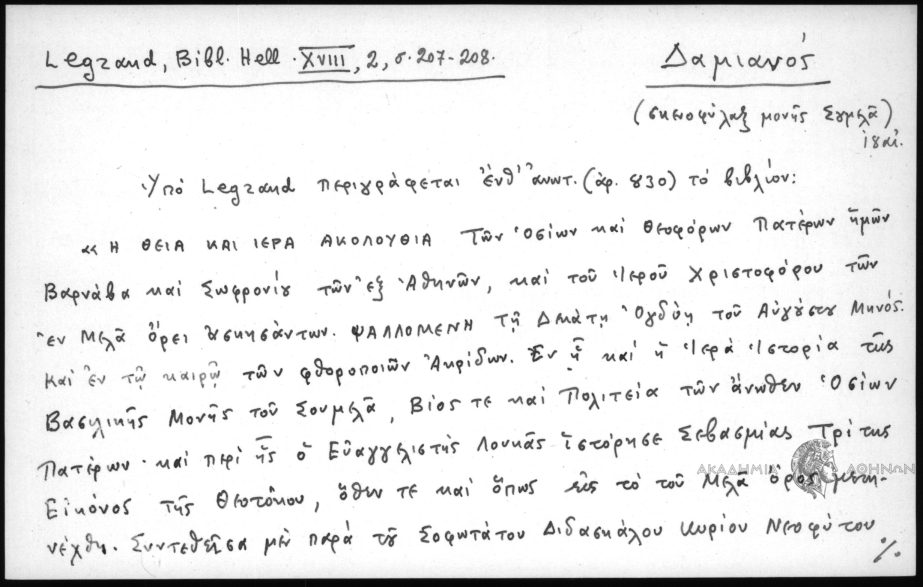 Legrand, Bibl. Hell. XVIII, 2, σ. 207-208.
Δαμιανός
(σκευοφύλαξ μονῆς Σουμελᾶ)
ιδαί.
Ὑπό Legrand περιγράφεται ἐνθ' ἀνωτ. (ἀρ. 830) τό βιβλίον:
« Η ΘΕΙΑ ΚΑΙ ΙΕΡΑ ΑΚΟΛΟΥΘΙΑ Τῶν Ὁσίων καί Θεοφόρων Πατέρων ἡμῶν
Βαρνάβα καί Σωφρονίου τῶν ἐξ Ἀθηνῶν, καί τοῦ Ἱεροῦ Χριστοφόρου τῶν
ἐν Μελᾶ ὄρει ἀσκησάντων. ΨΑΛΛΟΜΕΝΗ Τῇ Δεκάτῃ Ὀγδόῃ τοῦ Αὐγούστου Μηνός.
Καί ἐν τῷ καιρῷ τῶν φθοροποιῶν Ἀκρίδων. Ἐν ᾗ καί ἡ Ἱερά Ἱστορία τῆς
Βασιλικῆς Μονῆς τοῦ Σουμελᾶ, Βίος τε καί Πολιτεία τῶν ἄνωθεν Ὁσίων
Πατέρων· καί περί ἧς ὁ Εὐαγγελιστής Λουκᾶς ἱστόρησε Σεβασμίας Τρίτης
Εἰκόνος τῆς Θεοτόκου, ὅθεν τε καί ὅπως εἰς τό τοῦ Μελᾶ ὄρος μετη-
νέχθη. Συντεθεῖσα μέν παρά τοῦ Σοφωτάτου Διδασκάλου Κυρίου Νεοφύτου
./.
ΑΚΑΔΗΜΙΑ ΑΘΗΝΩΝ